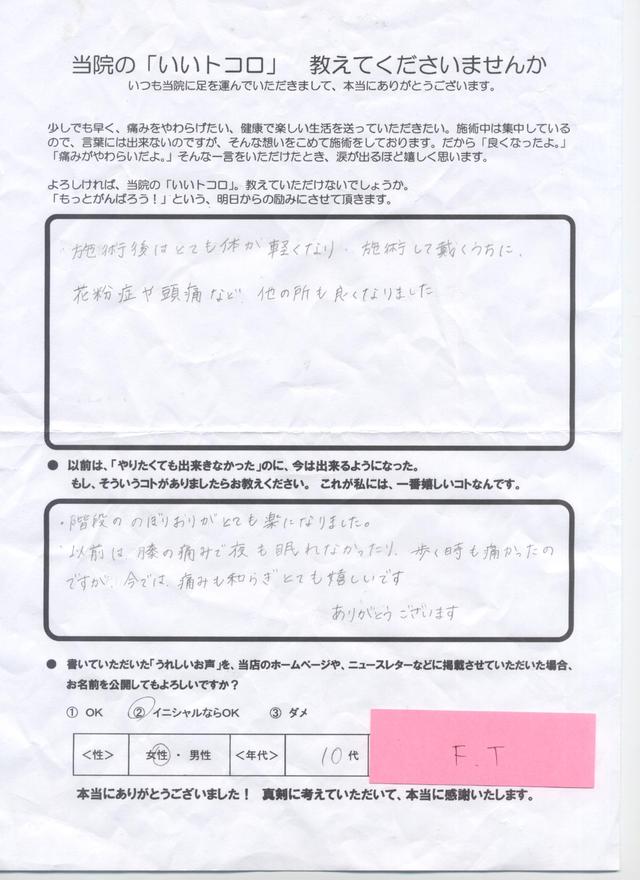 当院の「いいトコロ」　教えてくださいませんか
いつも当院に足を運んでいただきまして、本当にありがとうございます。
少しでも早く、痛みをやわらげたい、健康で楽しい生活を送っていただきたい。施術中は集中している
ので、言葉には出来ないのですが、そんな想いをこめて施術をしております。だから「良くなったよ。」
「痛みがやわらいだよ。」そんな一言をいただけたとき、涙が出るほど嬉しく思います。
よろしければ、当院の「いいトコロ」。教えていただけないでしょうか。
「もっとがんばろう！」という、明日からの励みにさせて頂きます。
・施術後はとても体が軽くなり、施術して戴くうちに、
花粉症や頭痛など、他の所も良くなりました
● 以前は、「やりたくても出来きなかった」のに、今は出来るようになった。
もし、そういうコトがありましたらお教えください。　これが私には、一番嬉しいコトなんです。
・階段ののぼりおりがとても楽になりました。
・以前は、膝の痛みで夜も眠れなかったり、歩く時も痛かったの
ですが、今では、痛みも和らぎとても嬉しいです
ありがとうございます
● 書いていただいた「うれしいお声」を、当店のホームページや、ニュースレターなどに掲載させていただいた場合、
お名前を公開してもよろしいですか？
① OK　② イニシャルならOK　③ ダメ
＜性＞　女性 ・ 男性　＜年代＞　10 代　F.T
本当にありがとうございました！　真剣に考えていただいて、本当に感謝いたします。